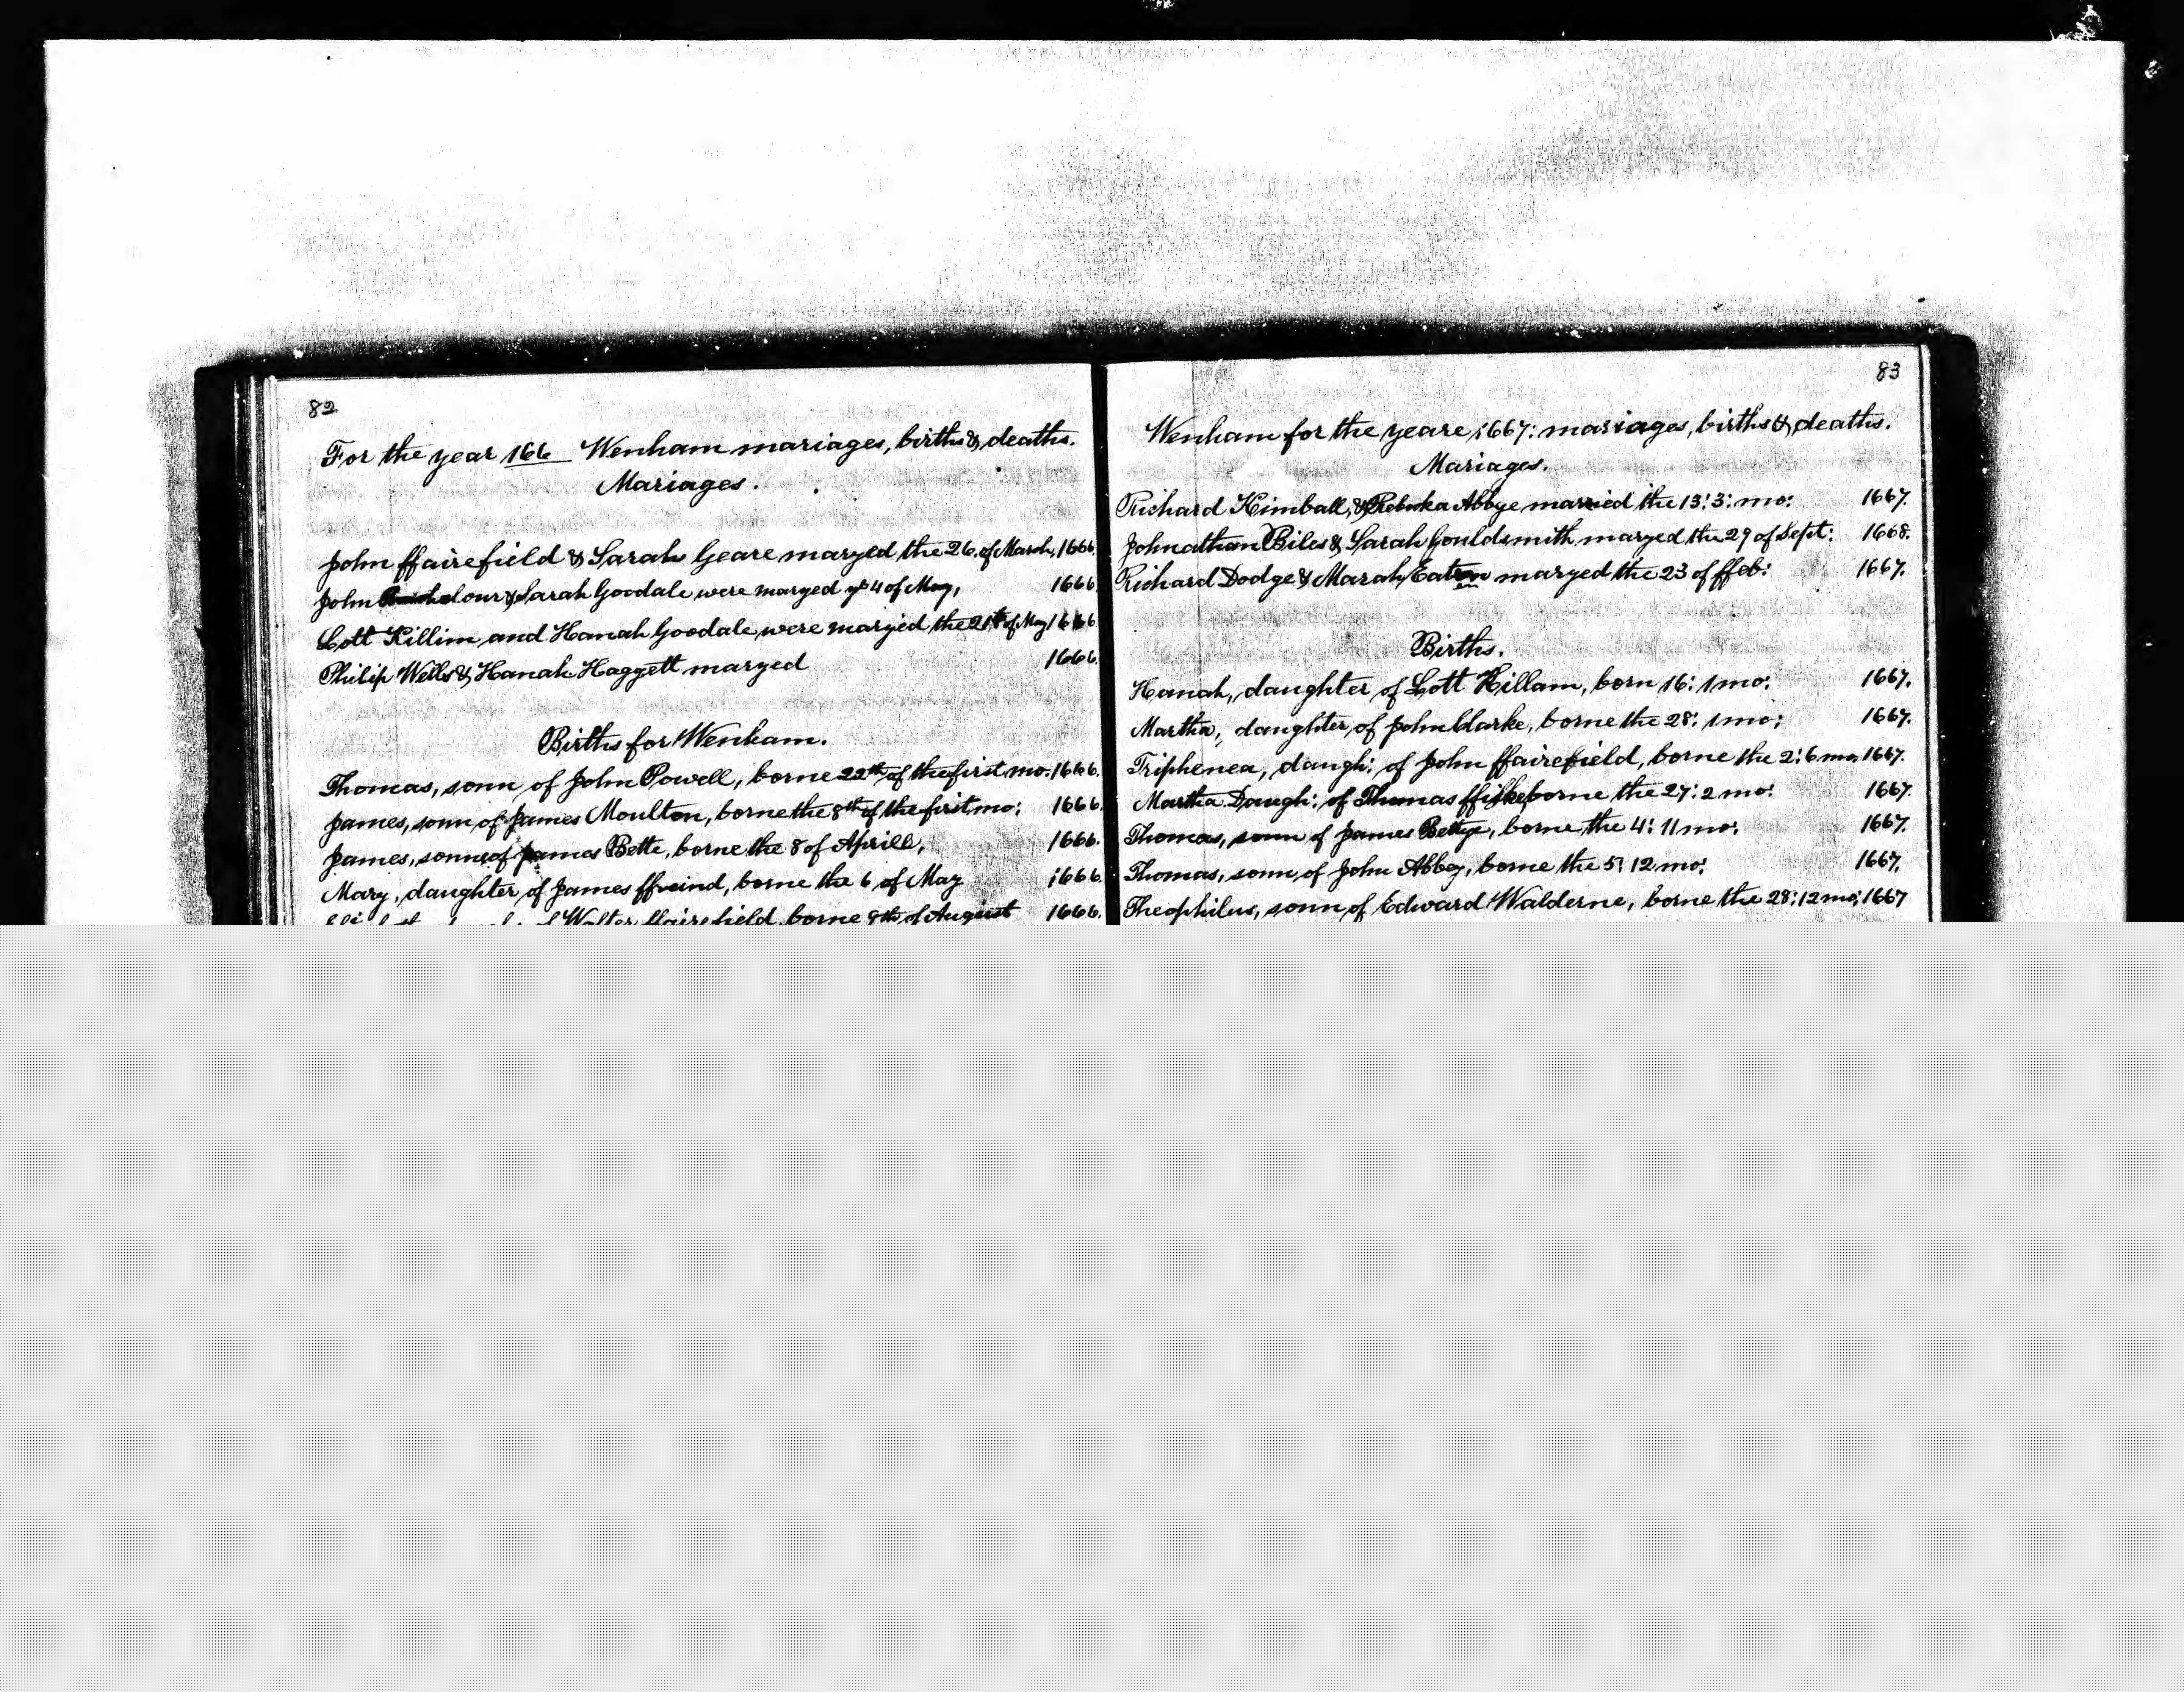 82
For the year 166 Wenham mariages, births & deaths.
Mariages.
John ffairefield & Sarah Geare maryed the 26. of March, 1666.
John lour & Sarah Goodale were maryed ye 4 of May, 1666
Lott Killim and Hanah Goodale, were maryed the 21th of May 1666
Philip Wells & Hanah Haggett maryed 1666.
Births for Wenham.
Thomas, sonn of John Powell, borne 22th of the first mo. 1666.
James, sonn of James Moulton, borne the 8th of the first mo: 1666.
James, sonne of James Bette, borne the 8 of Aprill, 1666.
Mary, daughter of James ffreind, borne the 6 of May 1666.
of Walter ffairefield, borne 8th of August 1666.
83
Wenham for the yeare, 1667: mariages, births & deaths.
Mariages.
Richard Kimball, & Rebecka Abbye married the 13: 3: mo: 1667.
Johnathan Biles & Sarah Gouldsmith maryed the 29 of Sept: 1668.
Richard Dodge & Marah Eaton maryed the 23 of ffeb: 1667.
Births.
Hanah, daughter of Lott Killam, born 16: 1 mo: 1667.
Martha, daughter of John Clarke, borne the 28: 1 mo: 1667.
Triphenea, daugh: of John ffairefield, borne the 2: 6 mo. 1667.
Martha Daugh: of Thomas ffiske borne the 27: 2 mo: 1667.
Thomas, sonn of James Bettye, borne the 4: 11 mo: 1667.
Thomas, sonn of John Abbey, borne the 5: 12 mo: 1667.
Theophilus, sonn of Edward Walderne, borne the 28: 12 mo: 1667